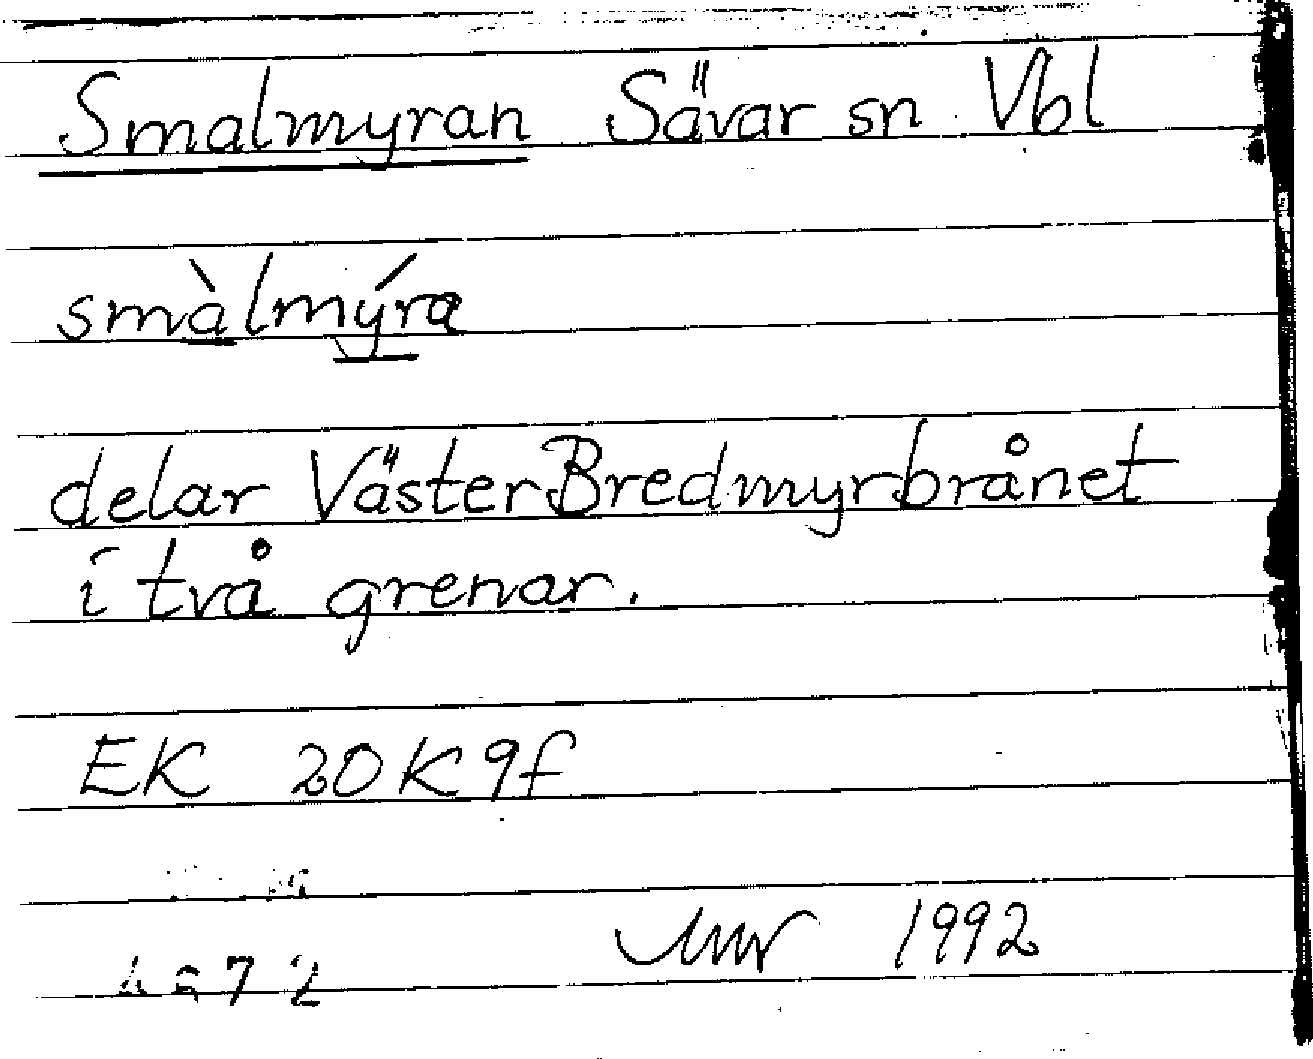 Smalmyran Sävar sn Vbl
smàlmýra
delar VästerBredmyrbrånet
i två grenar.
EK 20K9f
1992